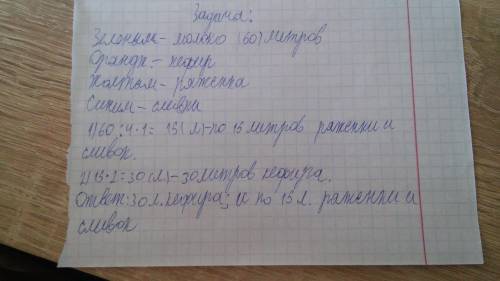 Задача:
Зеленым - молоко (60) метров
Оранж - кефир
Желтым - ряженка
Синим - сливка
1) 60 : 4 · 1 = 15 (л) - по 15 метров ряженки и
сливок.
2) 15 · 2 = 30 (л) - 30 метров кефира.
Ответ: 30 л. кефира; и по 15 л. ряженки и
сливок